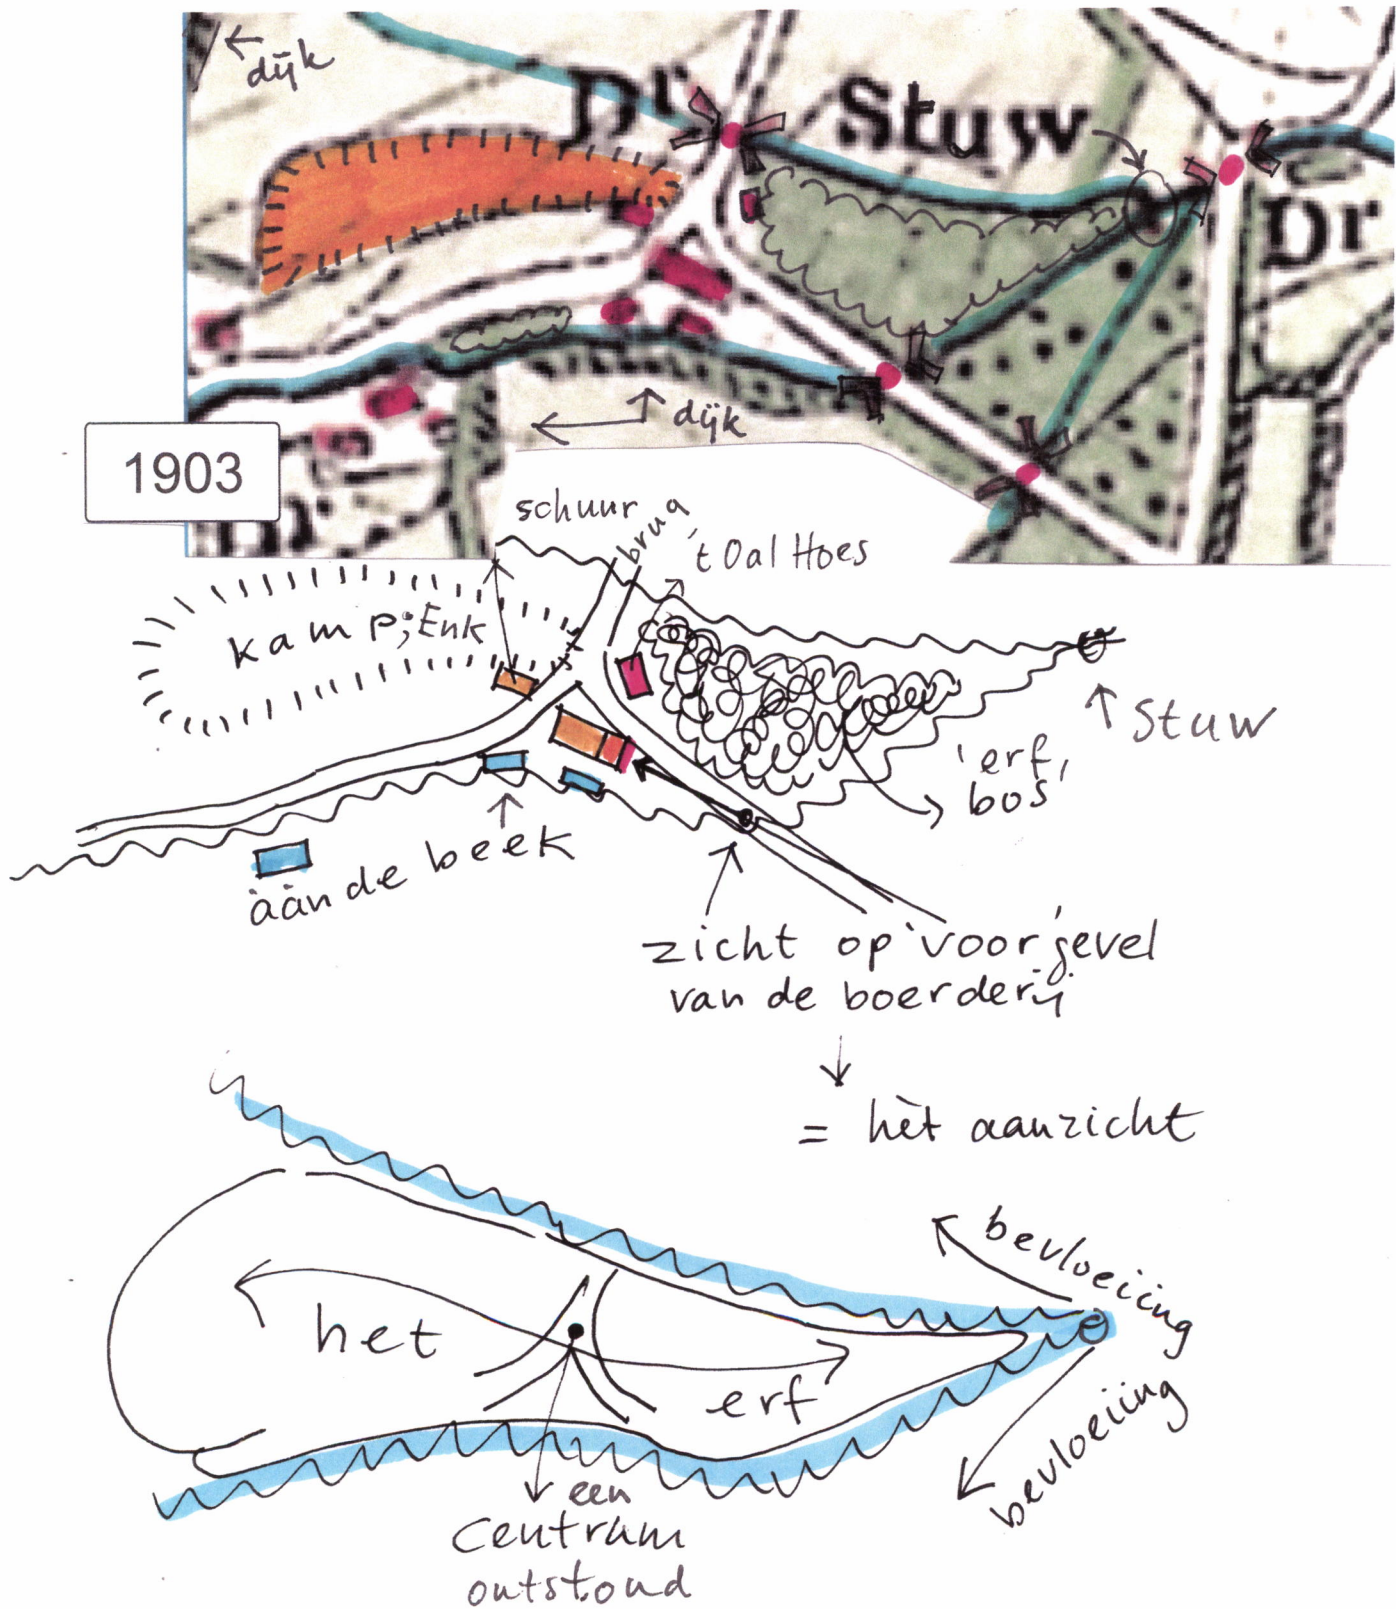 ← dijk
Dr
Stuw
Dr
← ↑ dijk
1903
schuur
brug
't Oal Hoes
kamp; Enk
↑ Stuw
'erf'
bos
áán de beek
zicht op 'voor'gevel
van de boerderij
↓
= hèt aanzicht
bevloeiing
het
erf
bevloeiing
een
Centrum
ontstond